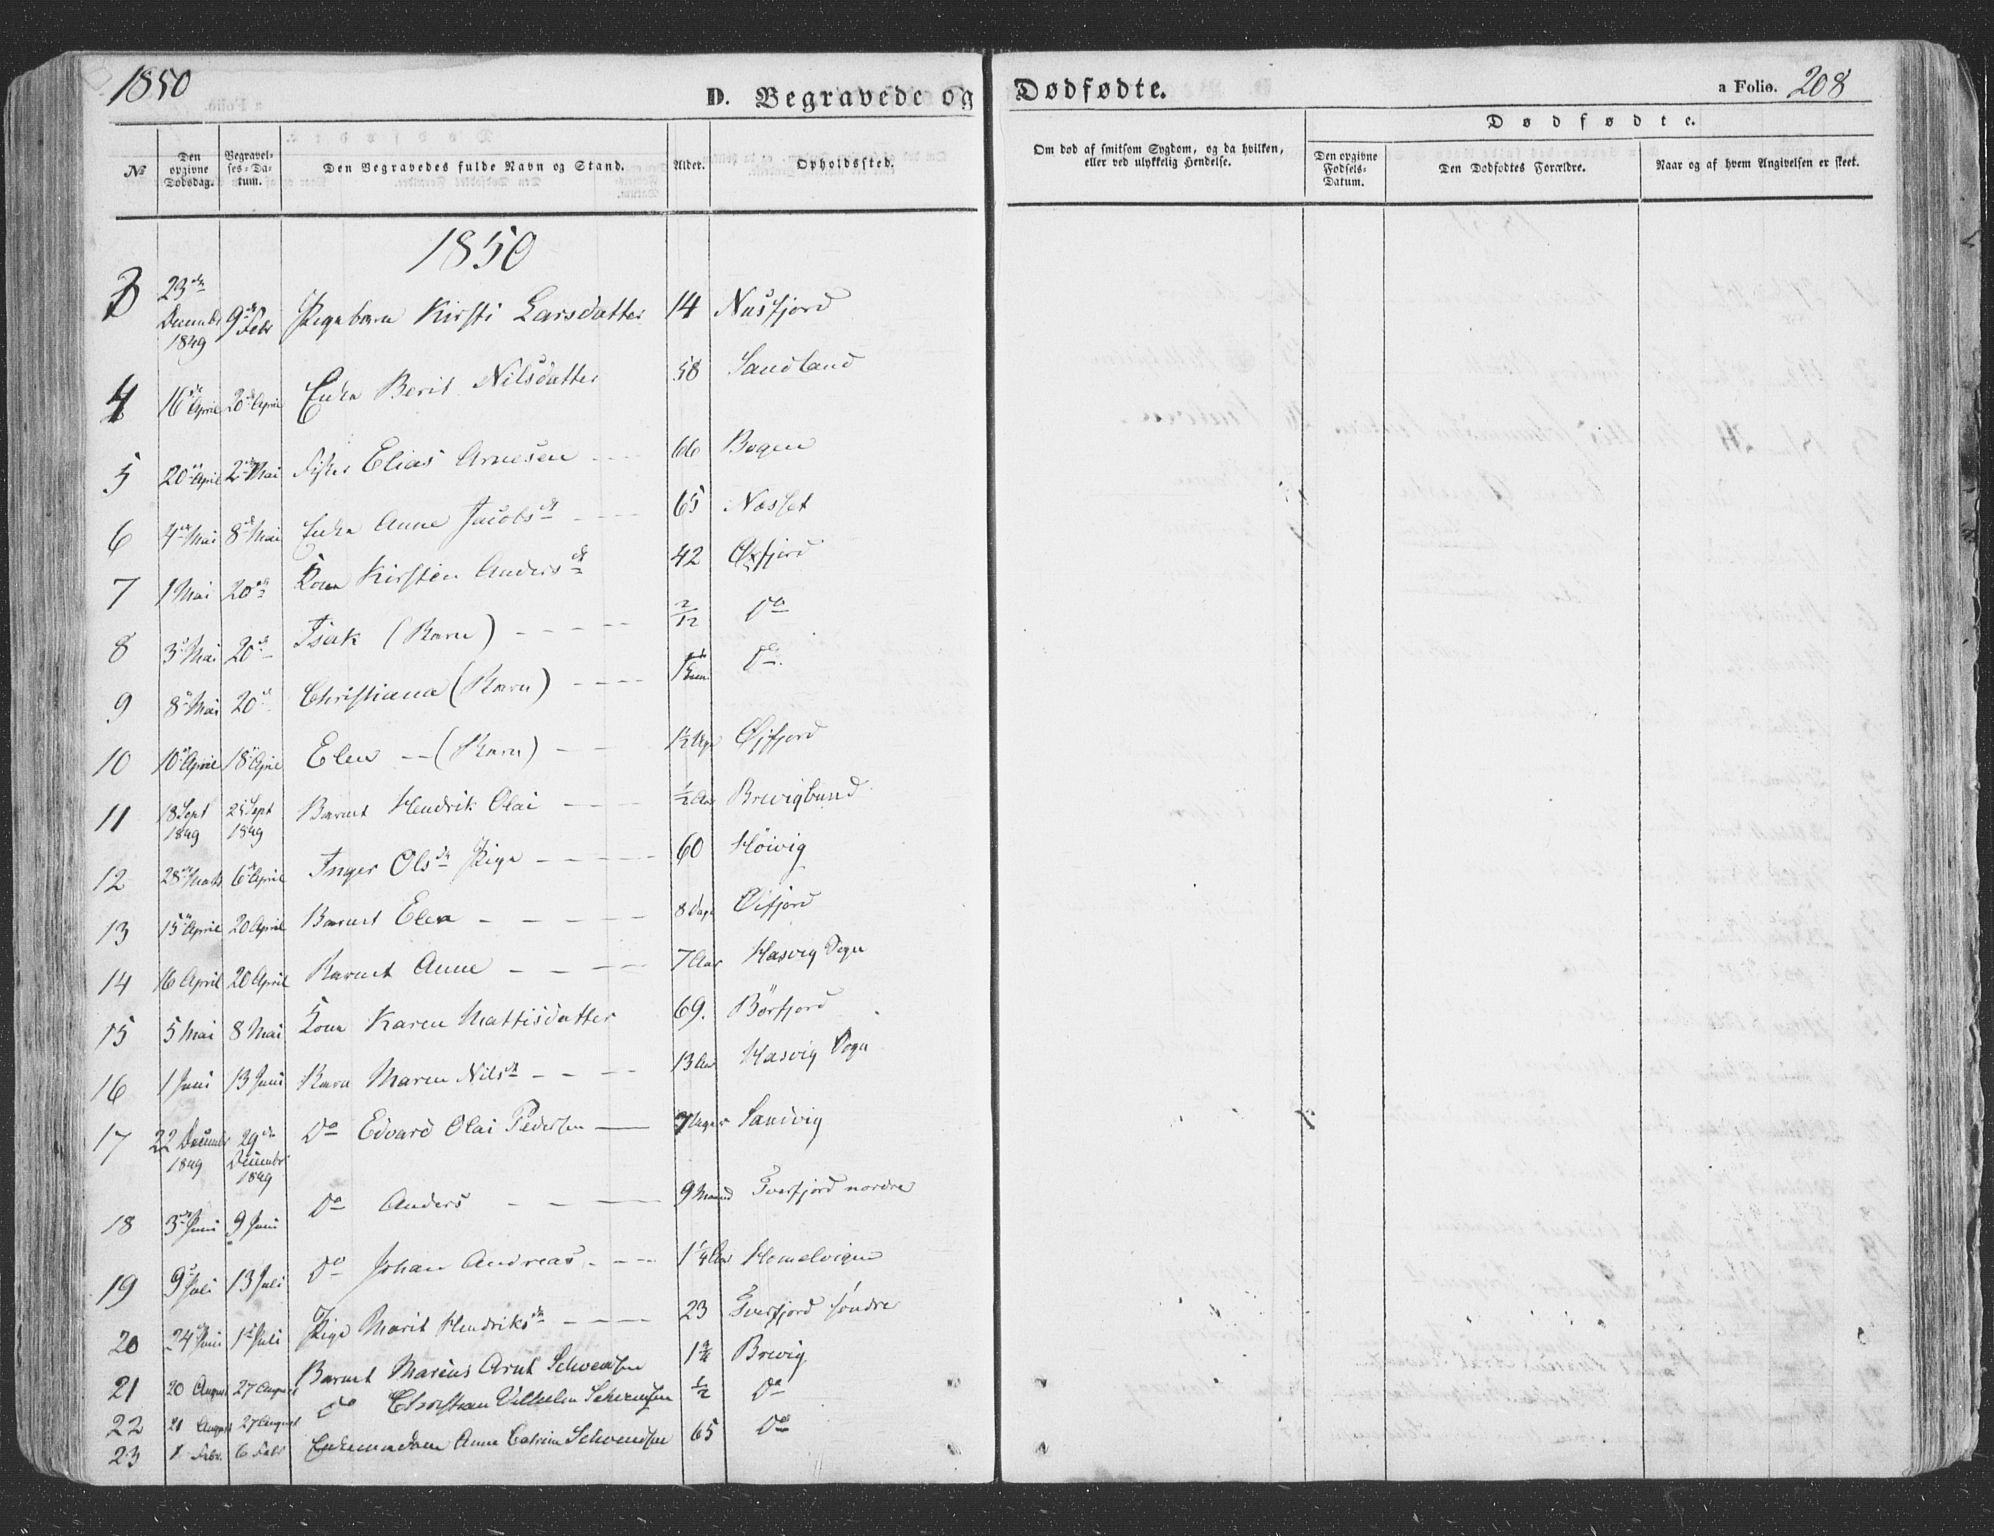 1850
D. Begravede og Dødfødte.
a Folio. 208
Dødfødte.
№
Den opgivne Dødsdag.
Begravelses-Datum.
Den Begravedes fulde Navn og Stand.
Alder.
Opholdssted.
Om død af smitsom Sygdom, og da hvilken, eller ved ulykkelig Hendelse.
Den opgivne Fødsels-Datum.
Den Dødfødtes Forældre.
Naar og af hvem Angivelsen er skeet.
1850
3 23de Decembr 1849 9de Febr Pigebarn Kirsti Larsdatter 14 Nusfjord
4 16de April 20de April Enke Berit Nilsdatter 58 Sandland
5 20de April 2den Mai Fisker Elias Arnesen 66 Bogen
6 4de Mai 8de Mai Enke Anne Jacobsdr 65 Næsset
7 1 Mai 20de Kone Kirsten Andersdr 42 Øxfjord
8 3de Mai 20de Isak (Barn) 2/12 Do
9 8de Mai 20de Christiana (Barn) Do
10 10de April 18de April Elen (Barn) Øxfjord
11 18 Sept 1849 25 Sept 1849 Barnet Hendrik Olai 1/2 Aar Brevigbund
12 28de Marts 6de April Inger Olsdr Pige 60 Høivig
13 15de April 20 April Barnet Elen 8 Dage Øxfjord
14 16 April 20 April Barnet Anne 7 Aar Hasvig Sogn
15 5 Mai 8 Mai Kone Karen Mattisdatter 69. Børfjord
16 1 Juni 13 Juni Barn Maren Nilsdr 13 Aar Hasvig Sogn
17 22 Decembr 1849 29de Decembr 1849 Do Edvard Olai Pedersen Sandvig
18 3de Juni 9 Juni Do Anders 9 Maaned Tverfjord nordre
19 9de Juli 13 Juli Do Johan Andreas 1 1/4 Aar Homelvigen
20 24de Juni 1ste Juli Pige Marit Hendriksdr 23 Tverfjord søndre
21 20 August 27 August Barnet Marius Arnt Schvendsen 1 3/4 Brevig
22 21 August 27 August do Christian Vilhelm Schvendsen 1/2 Do
23 1 Febr. 6 Febr Enkemadam Anne Catrine Schvendsen 65 Do